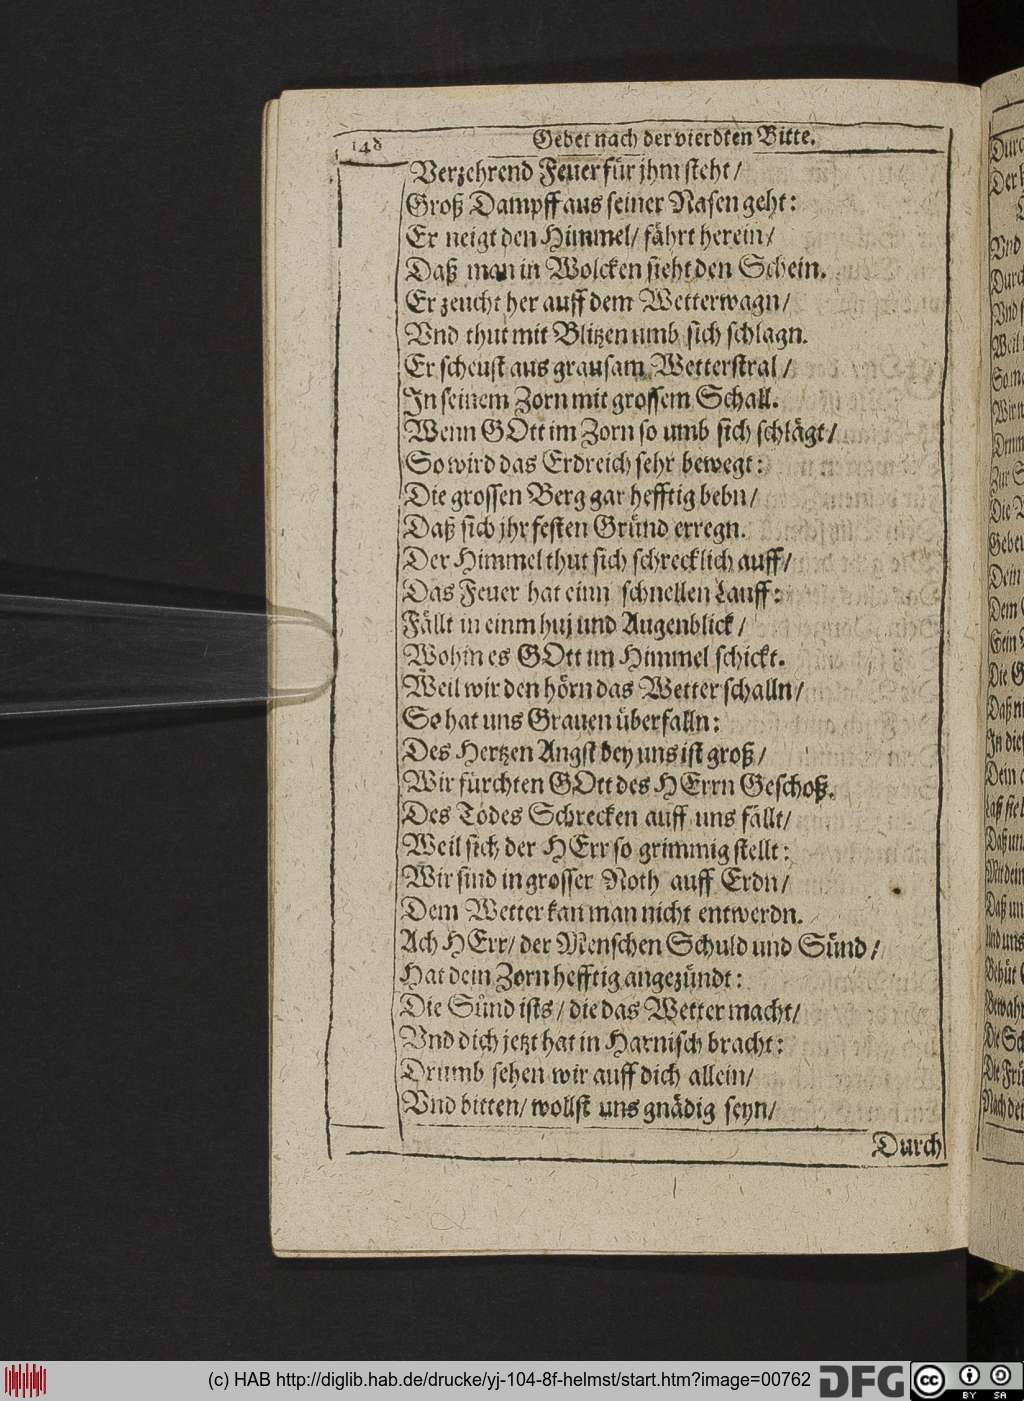 148
Gebet nach der vierdten Bitte.
Verzehrend Feuer für jhm steht /
Groß Dampff aus seiner Nasen geht :
Er neigt den Himmel / fährt herein /
Daß man in Wolcken sieht den Schein.
Er zeucht her auff dem Wetterwagn /
Vnd thut mit Blitzen umb sich schlagn.
Er scheust aus grausam Wetterstral /
In seinem Zorn mit grossem Schall.
Wenn GOtt im Zorn so umb sich schlägt /
So wird das Erdreich sehr bewegt :
Die grossen Berg gar hefftig bebn /
Daß sich jhr festen Gründ erregn.
Der Himmel thut sich schrecklich auff /
Das Feuer hat einn schnellen Lauff :
Fällt in einm huj und Augenblick /
Wohin es GOtt im Himmel schickt.
Weil wir den hörn das Wetter schalln /
So hat uns Grauen überfalln :
Des Hertzen Angst bey uns ist groß /
Wir fürchten GOtt des HErrn Geschoß.
Des Todes Schrecken auff uns fällt /
Weil sich der HErr so grimmig stellt :
Wir sind in grosser Noth auff Erdn /
Dem Wetter kan man nicht entwerdn.
Ach HErr / der Menschen Schuld und Sünd /
Hat dein Zorn hefftig angezündt :
Die Sünd ists / die das Wetter macht /
Vnd dich jetzt hat in Harnisch bracht :
Drumb sehen wir auff dich allein /
Vnd bitten / wollst uns gnädig seyn /
Durch
(c) HAB http://diglib.hab.de/drucke/yj-104-8f-helmst/start.htm?image=00762
DFG
cc
BY SA